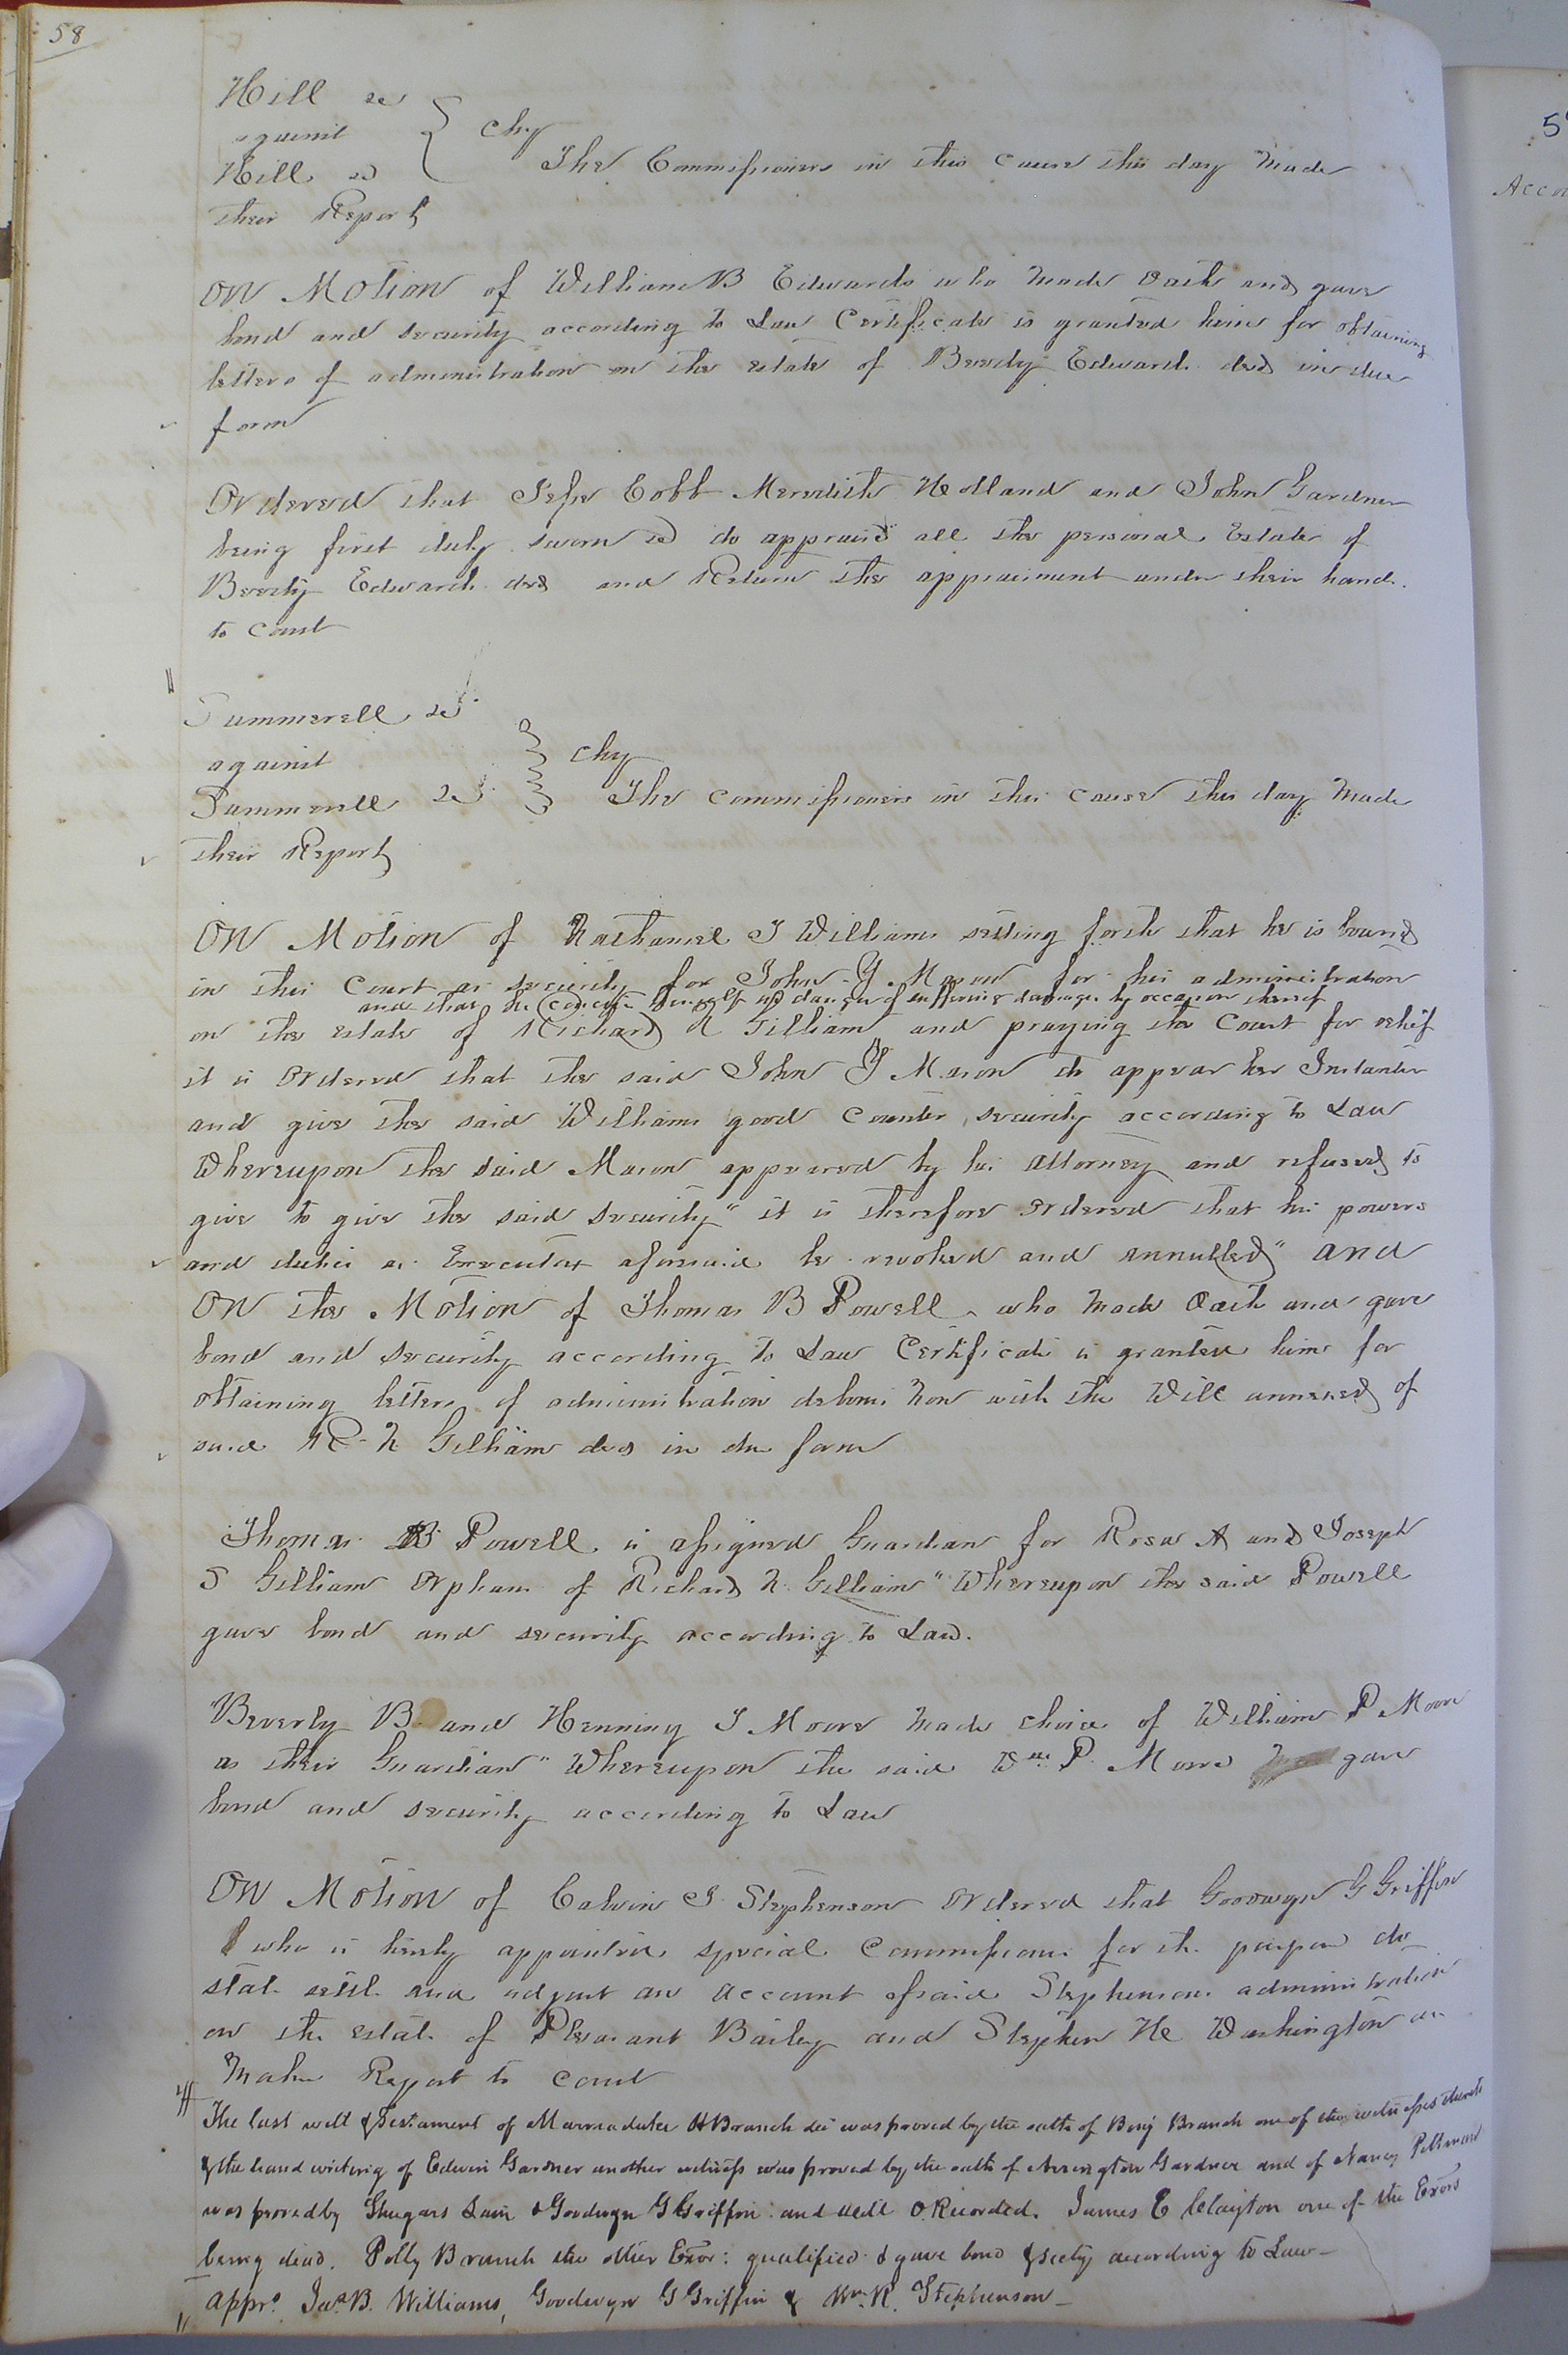 58
Hill &c
against } Chy
Hill &c The Commissioners in this cause this day made
their Report
On Motion of William B Edwards who made oath and gave
bond and security according to Law Certificate is granted him for obtaining
letters of administration on the estate of Beverly Edwards decd in due
form
Ordered that Jesse Cobb Meredith Holland and John Gardner
being first duly sworn &c do appraise all the personal Estate of
Beverly Edwards decd and Return the appraisment under their hands
to Court
Summerell &c
against } Chy
Summerell &c The Commissioners in this cause this day made
their Report
On Motion of Nathaniel J Williams setting forth that he is bound
in this Court as security for John Y. Mason for his administration
and that he conceives himself in danger of suffering damages by occasion thereof
on the estate of Richard N Gilliam and praying the Court for relief
it is Ordered that the said John Y Mason do appear her Instanter
and give the said Williams good Counter security according to Law
Whereupon the said Mason appeared by his attorney and refused to
give to give the said security" it is therefore ordered that his powers
and duties as Executor aforesaid be revoked and annulled" and
On the Motion of Thomas B Powell who made Oath and gave
bond and security according to Law Certificate is granted him for
obtaining letters of administration debonis Non with the Will annexed of
said R. N Gilliam decd in due form
Thomas B Powell is assigned Guardian for Rosa A and Joseph
S Gilliam Orphans of Richard N. Gilliam" Whereupon the said Powell
gave bond and security according to Law.
Beverly B and Henning T Moore made choice of William P Moore
as their Guardian" Whereupon the said Wm P. Moore gave
bond and security according to Law
On Motion of Calvin J Stephenson Ordered that Goodwyn G Griffin
who is hereby appointed special Commissioner for the purpose do
state settle and adjust an account of said Stephensons administration
on the estate of Pleasant Bailey and Stephen H Washington an
Make Report to Court
The last will & testament of Marmaduke H Branch dec was proved by the oath of Benj Branch one of the witnesses thereto
& the hand writing of Edwin Gardner another witness was proved by the oath of Arrington Gardner and of Nancy Pittman
was proved by Shugars Lain & Goodwyn G Griffin and O. Recorded. James E Clayton one of the Exors
being dead. Polly Branch the other Exor: qualified & gave bond & secty according to Law
Apprs. Jas. B. Williams, Goodwyn G Griffin & Wm. R. Stephenson
Acco